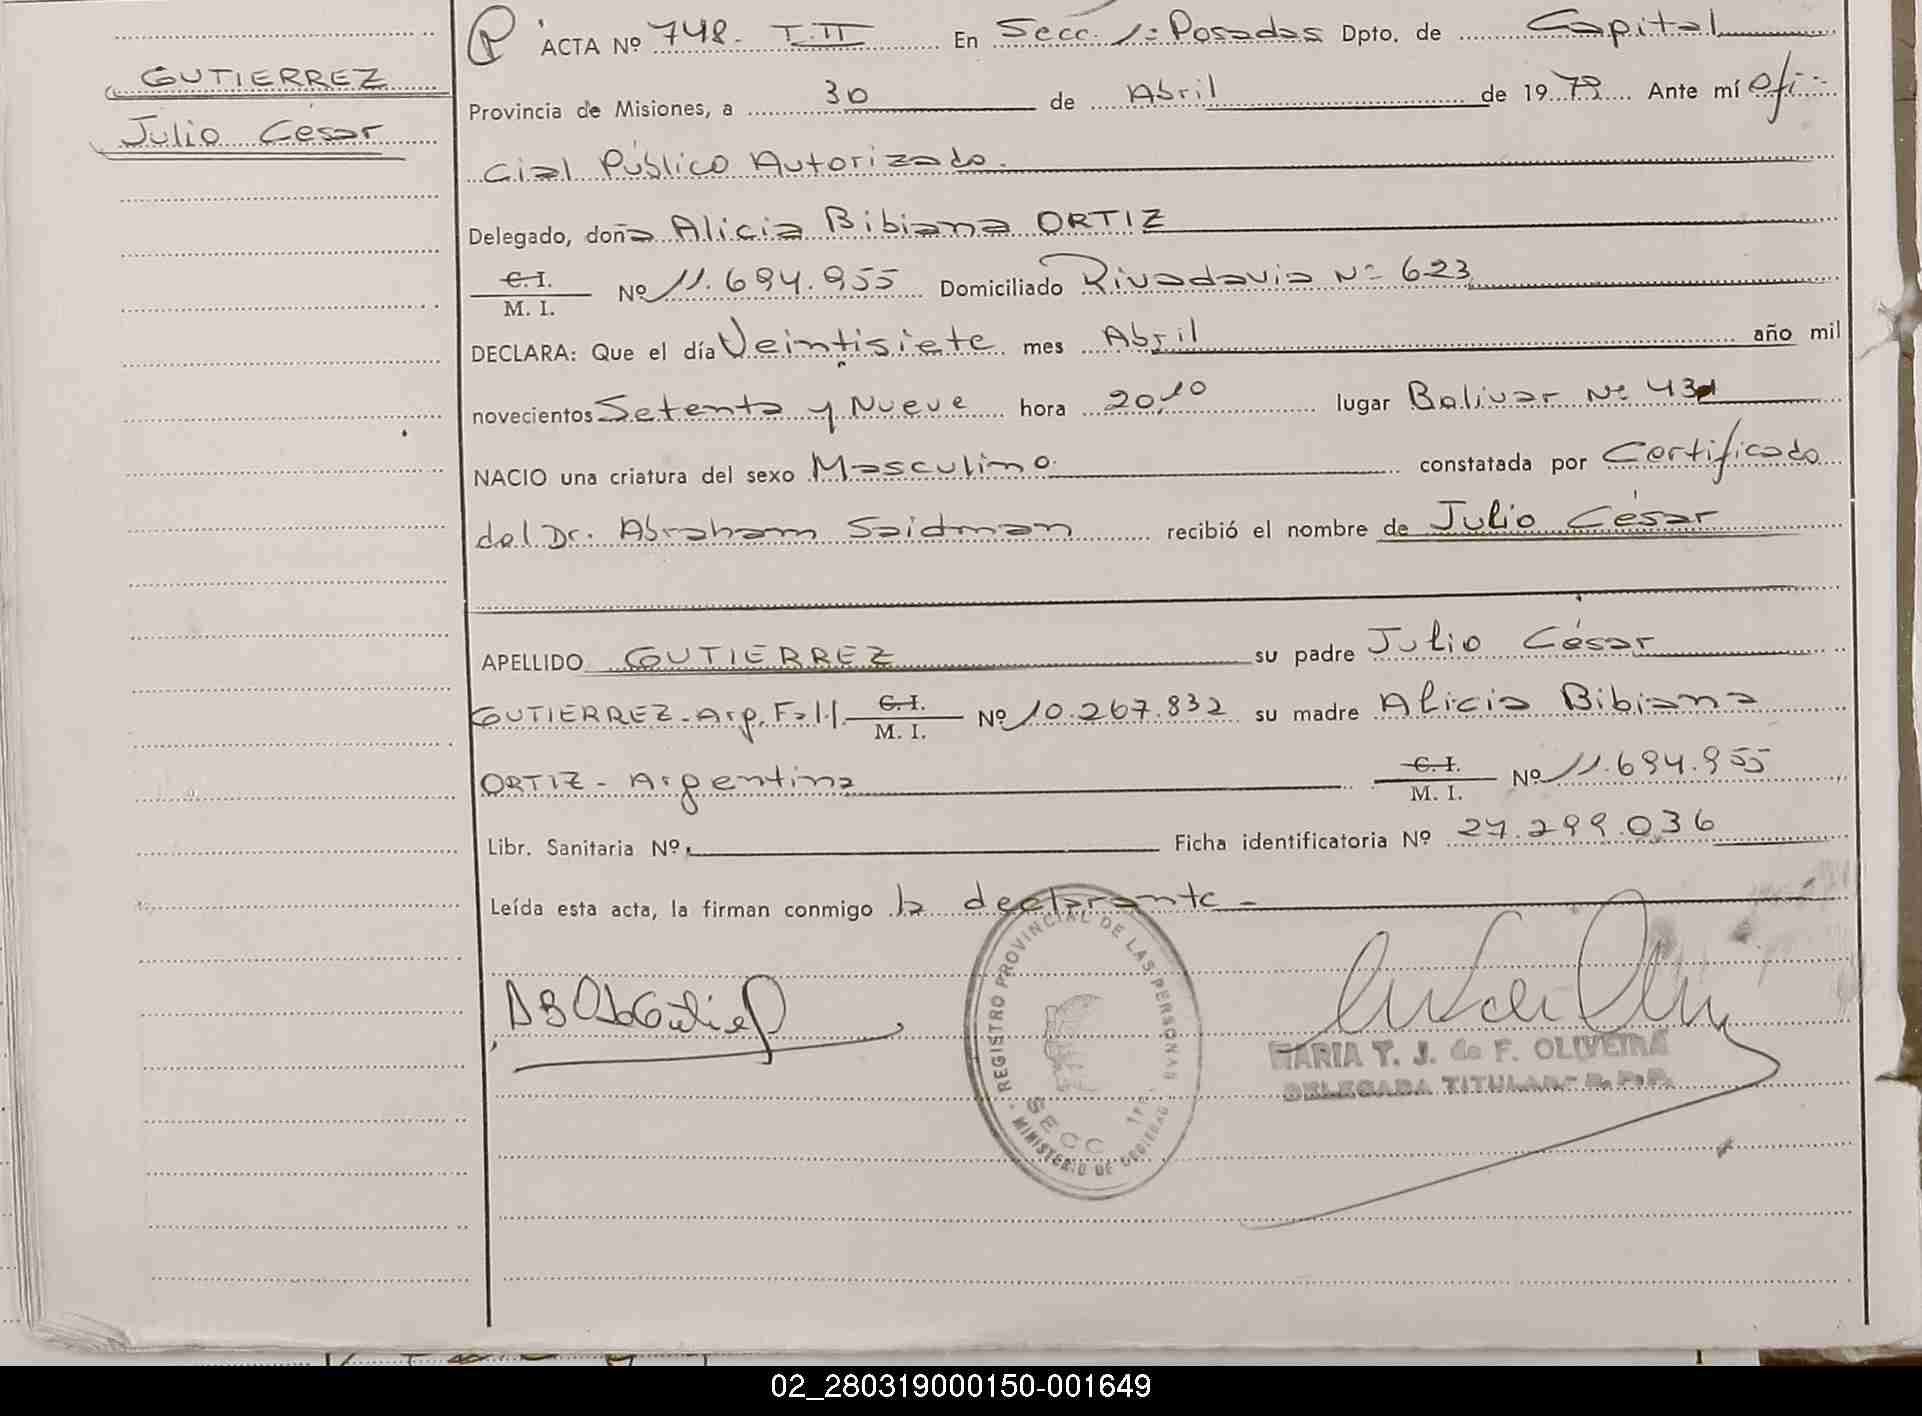 GUTIERREZ
Julio Cesar
P ACTA Nº 748. T.II En Secc. 1ª Posadas Dpto. de Capital
Provincia de Misiones, a 30 de Abril de 1979 Ante mí Ofi-
cial Público Autorizado.
Delegado, doña Alicia Bibiana ORTIZ
C.I.
M. I. Nº 11.694.955 Domiciliado Rivadavia Nº 623
DECLARA: Que el día Veintisiete mes Abril año mil
novecientos Setenta y Nueve hora 20,10 lugar Bolivar Nº
NACIO una criatura del sexo Masculino. constatada por Certificado
del Dr. Abraham Saidman recibió el nombre de Julio César
APELLIDO GUTIERREZ su padre Julio César
GUTIERREZ - Arg. Fall. C.I. M. I. Nº 10.267.832 su madre Alicia Bibiana
ORTIZ - Argentina C.I. M. I. Nº 11.694.955
Libr. Sanitaria Nº. Ficha identificatoria Nº 27.299.036
Leída esta acta, la firman conmigo la declarante -
REGISTRO PROVINCIAL DE LAS PERSONAS
SECC 1ra.
MINISTERIO DE GOBIERNO
MARIA T. J. de F. OLIVEIRA
DELEGADA TITULAR R. P. P.
02_280319000150-001649